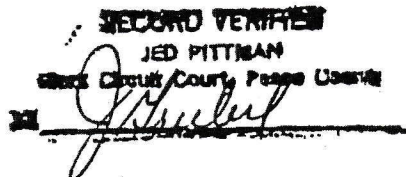 RECORD VERIFIED
JED PITTMAN
Clerk Circuit Court, Pasco County